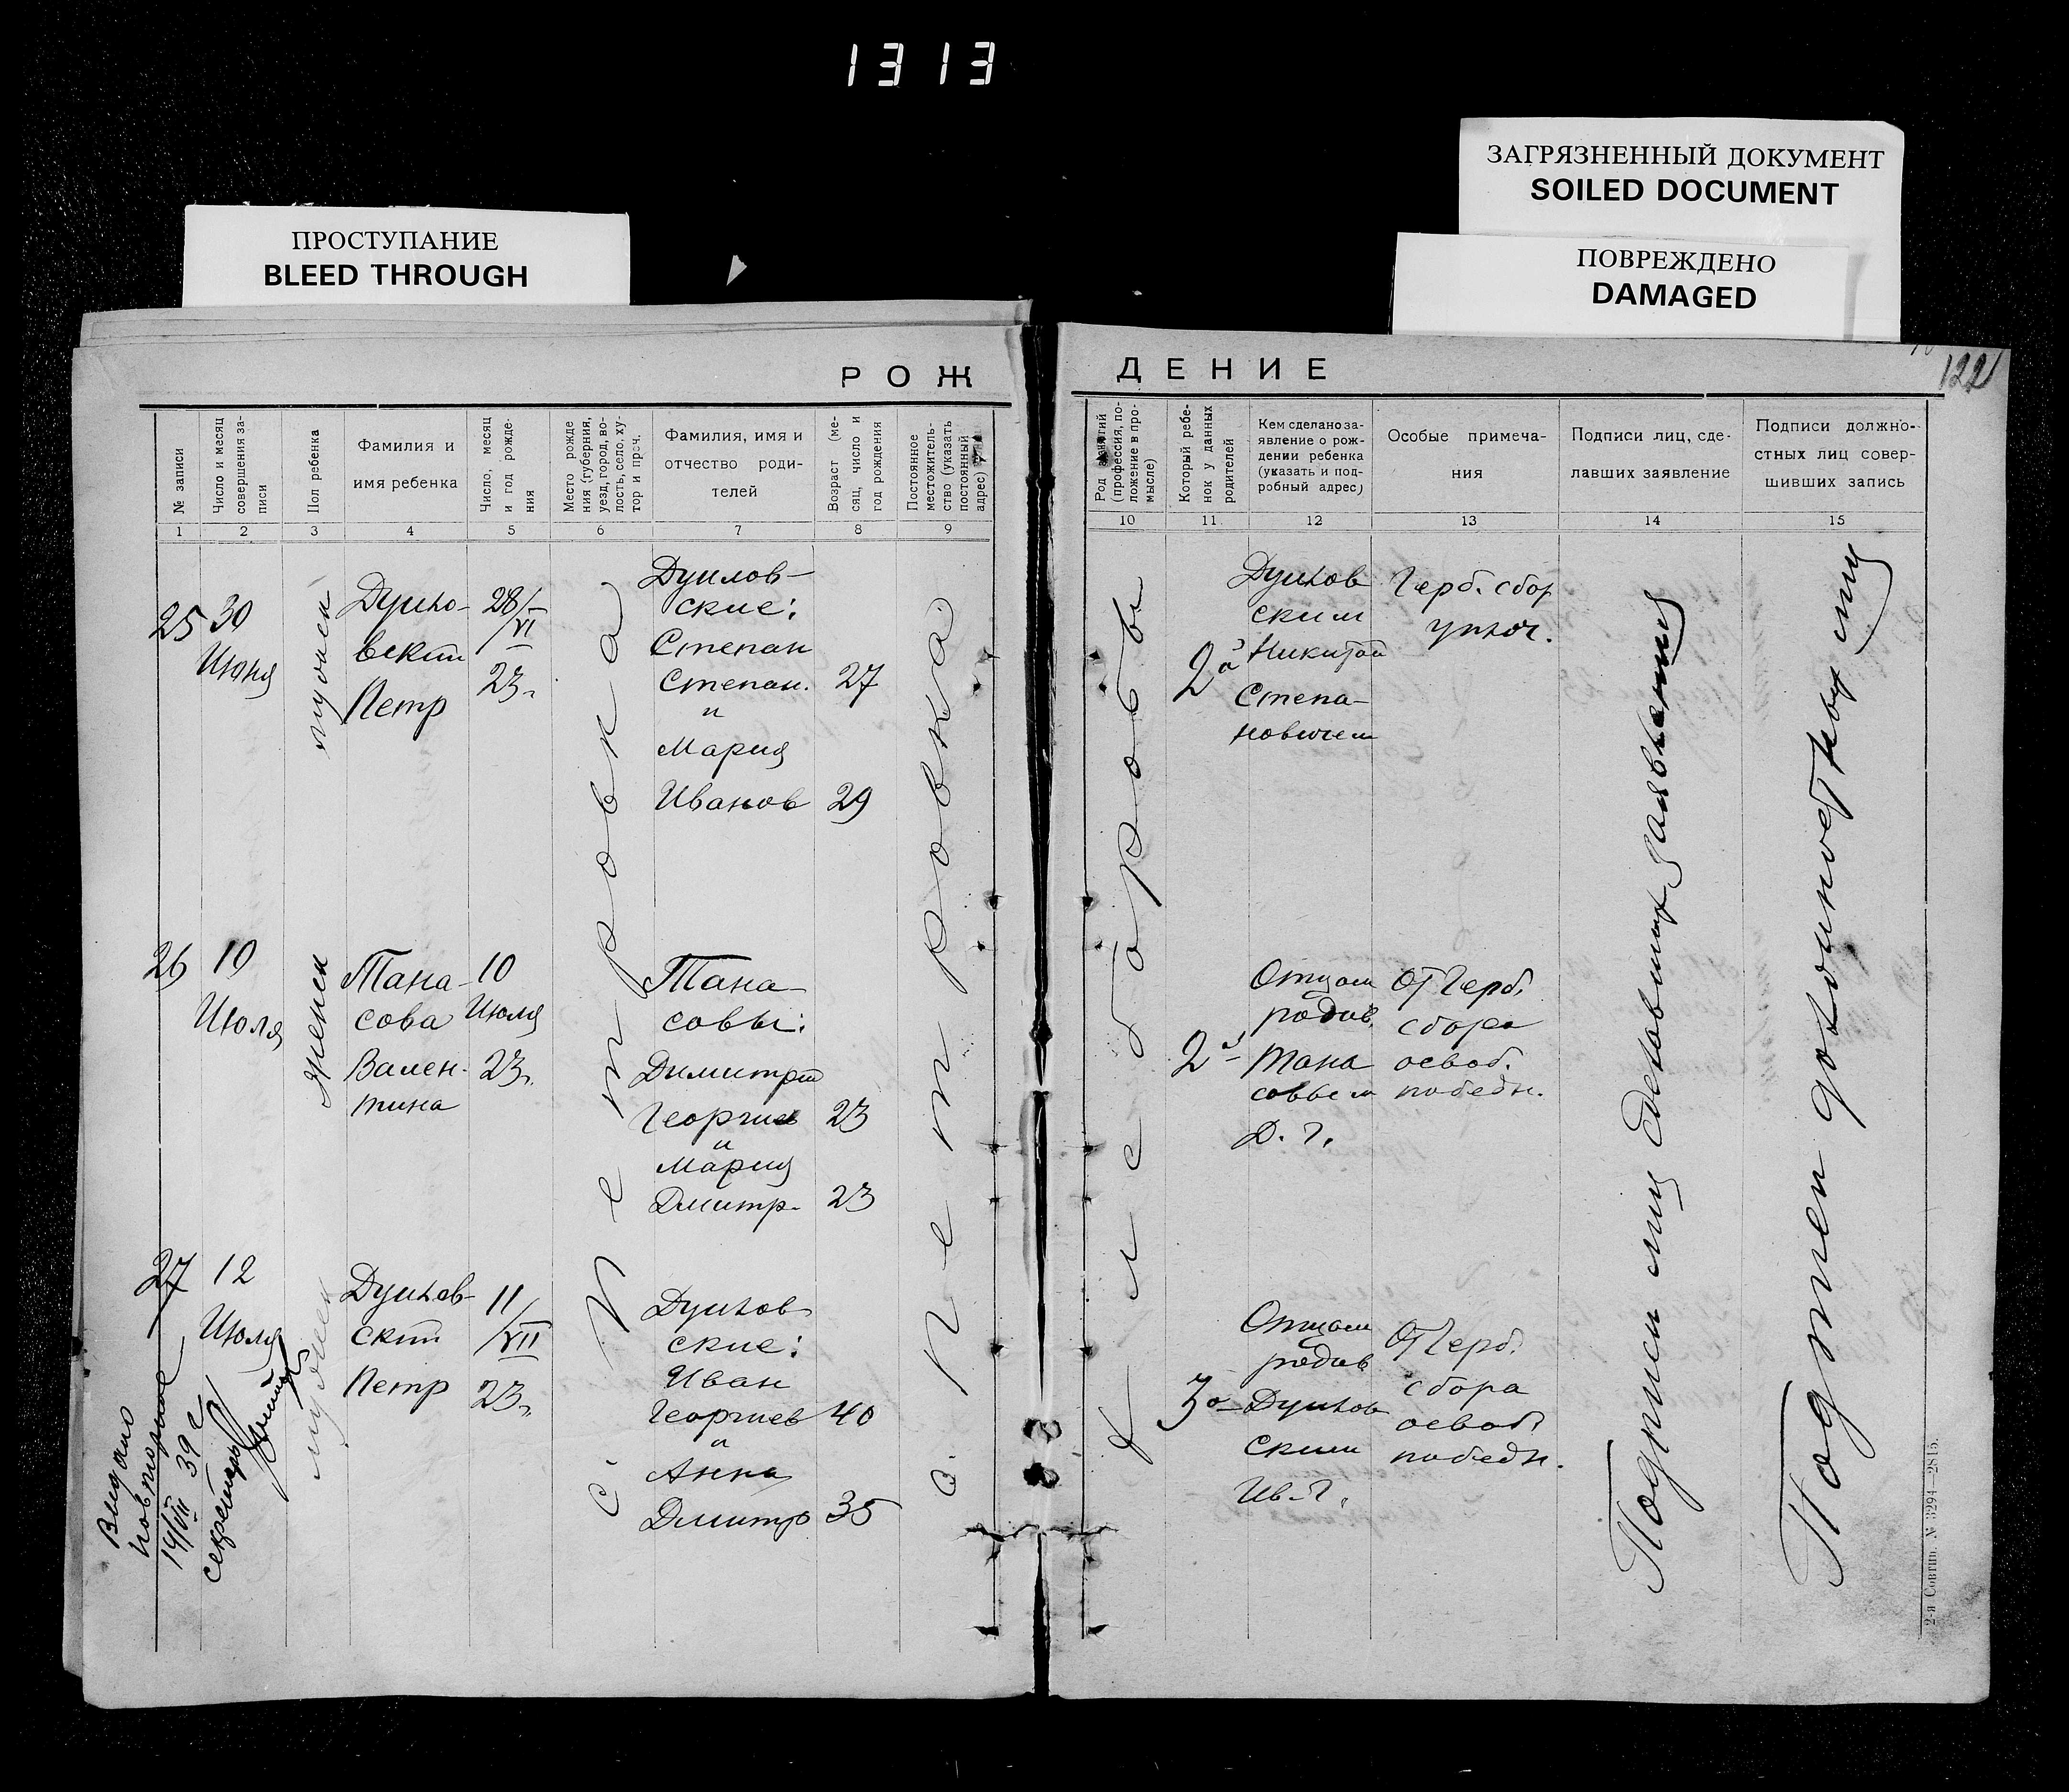 1313
ЗАГРЯЗНЕННЫЙ ДОКУМЕНТ
SOILED DOCUMENT
ПРОСТУПАНИЕ
BLEED THROUGH
ПОВРЕЖДЕНО
DAMAGED
122
РОЖ
ДЕНИЕ
№ записи
Число и месяц
совершения за-
писи
Пол ребенка
Фамилия и
имя ребенка
Число, месяц
и год рожде-
ния
Место рожде
ния (губерния,
уезд, город, во-
лость, село, ху-
тор и проч.
Фамилия, имя и
отчество роди-
телей
Возраст (ме-
сяц, число и
год рождения
Постоянное
местожитель-
ство (указать
постоянный
адрес)
Род занятий
(профессия, по-
ложение в про-
мысле)
Который ребе-
нок у данных
родителей
Кем сделано за-
явление о рож-
дении ребенка
(указать и под-
робный адрес)
Особые примеча-
ния
Подписи лиц, сде-
лавших заявление
Подписи должно-
стных лиц совер-
шивших запись
1 2 3 4 5 6 7 8 9
10 11 12 13 14 15
25
30
Июня
мужск
Душло-
вский
Петр
28/
/VI
23г.
Душлов-
ские:
Степан
Степан.
и
Мария
Иванов
27
29
2й
Душлов
ским
Никитой
Степа-
новичем
Герб. сбор
уплоч.
26
10
Июля
женск
Тана-
сова
Вален-
тина
10
Июля
23г.
Тана-
совы:
Димитрий
Георгиев
и
Мария
Дмитр-
23
23
2й
Отцом
родив.
Тана
совым
Д. Г.
От Герб.
сбора
освоб.
победн.
27
12
Июля
мужск
Душлов-
ский
Петр
11/
/VII
23г.
Душлов
ские:
Иван
Георгиев
и
Анна
Дмитр
40
35
3й
Отцом
родив
Душлов
ским
Ив. Г.
От Герб.
сбора
освоб.
победн.
с. Петровка
с. Петровка
хлеборобы
Подписи лиц сделавших заявления
Выдано
повторное
19/VII 39 г
секретарь
2-я Совтип. № 3294—2815.